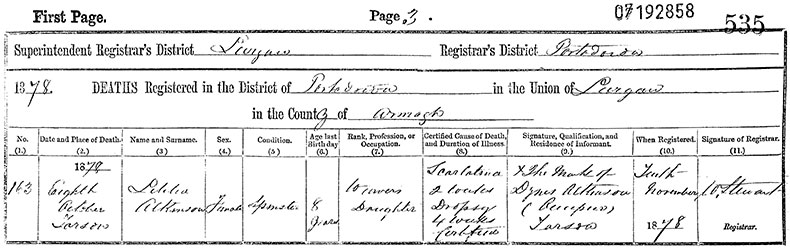 First Page. Page 3. 07192858
535
Superintendent Registrar's District Lurgan Registrar's District Portadown
1878. DEATHS Registered in the District of Portadown in the Union of Lurgan
in the County of Armagh
No. (1.) Date and Place of Death. (2.) Name and Surname. (3.) Sex. (4.) Condition. (5.) Age last Birthday (6.) Rank, Profession, or Occupation. (7.) Certified Cause of Death, and Duration of Illness. (8.) Signature, Qualification, and Residence of Informant. (9.) When Registered. (10.) Signature of Registrar. (11.)
163
1878
Eighth
October
Tarson
Atkinson
Female
Spinster
8
Years
Weavers
Daughter
Scarlatina
2 weeks
Dropsy
4 weeks
Certified
X The Mark of
Dynes Atkinson
(Occupier)
Tarson
Tenth
November
1878
W Stewart
Registrar.